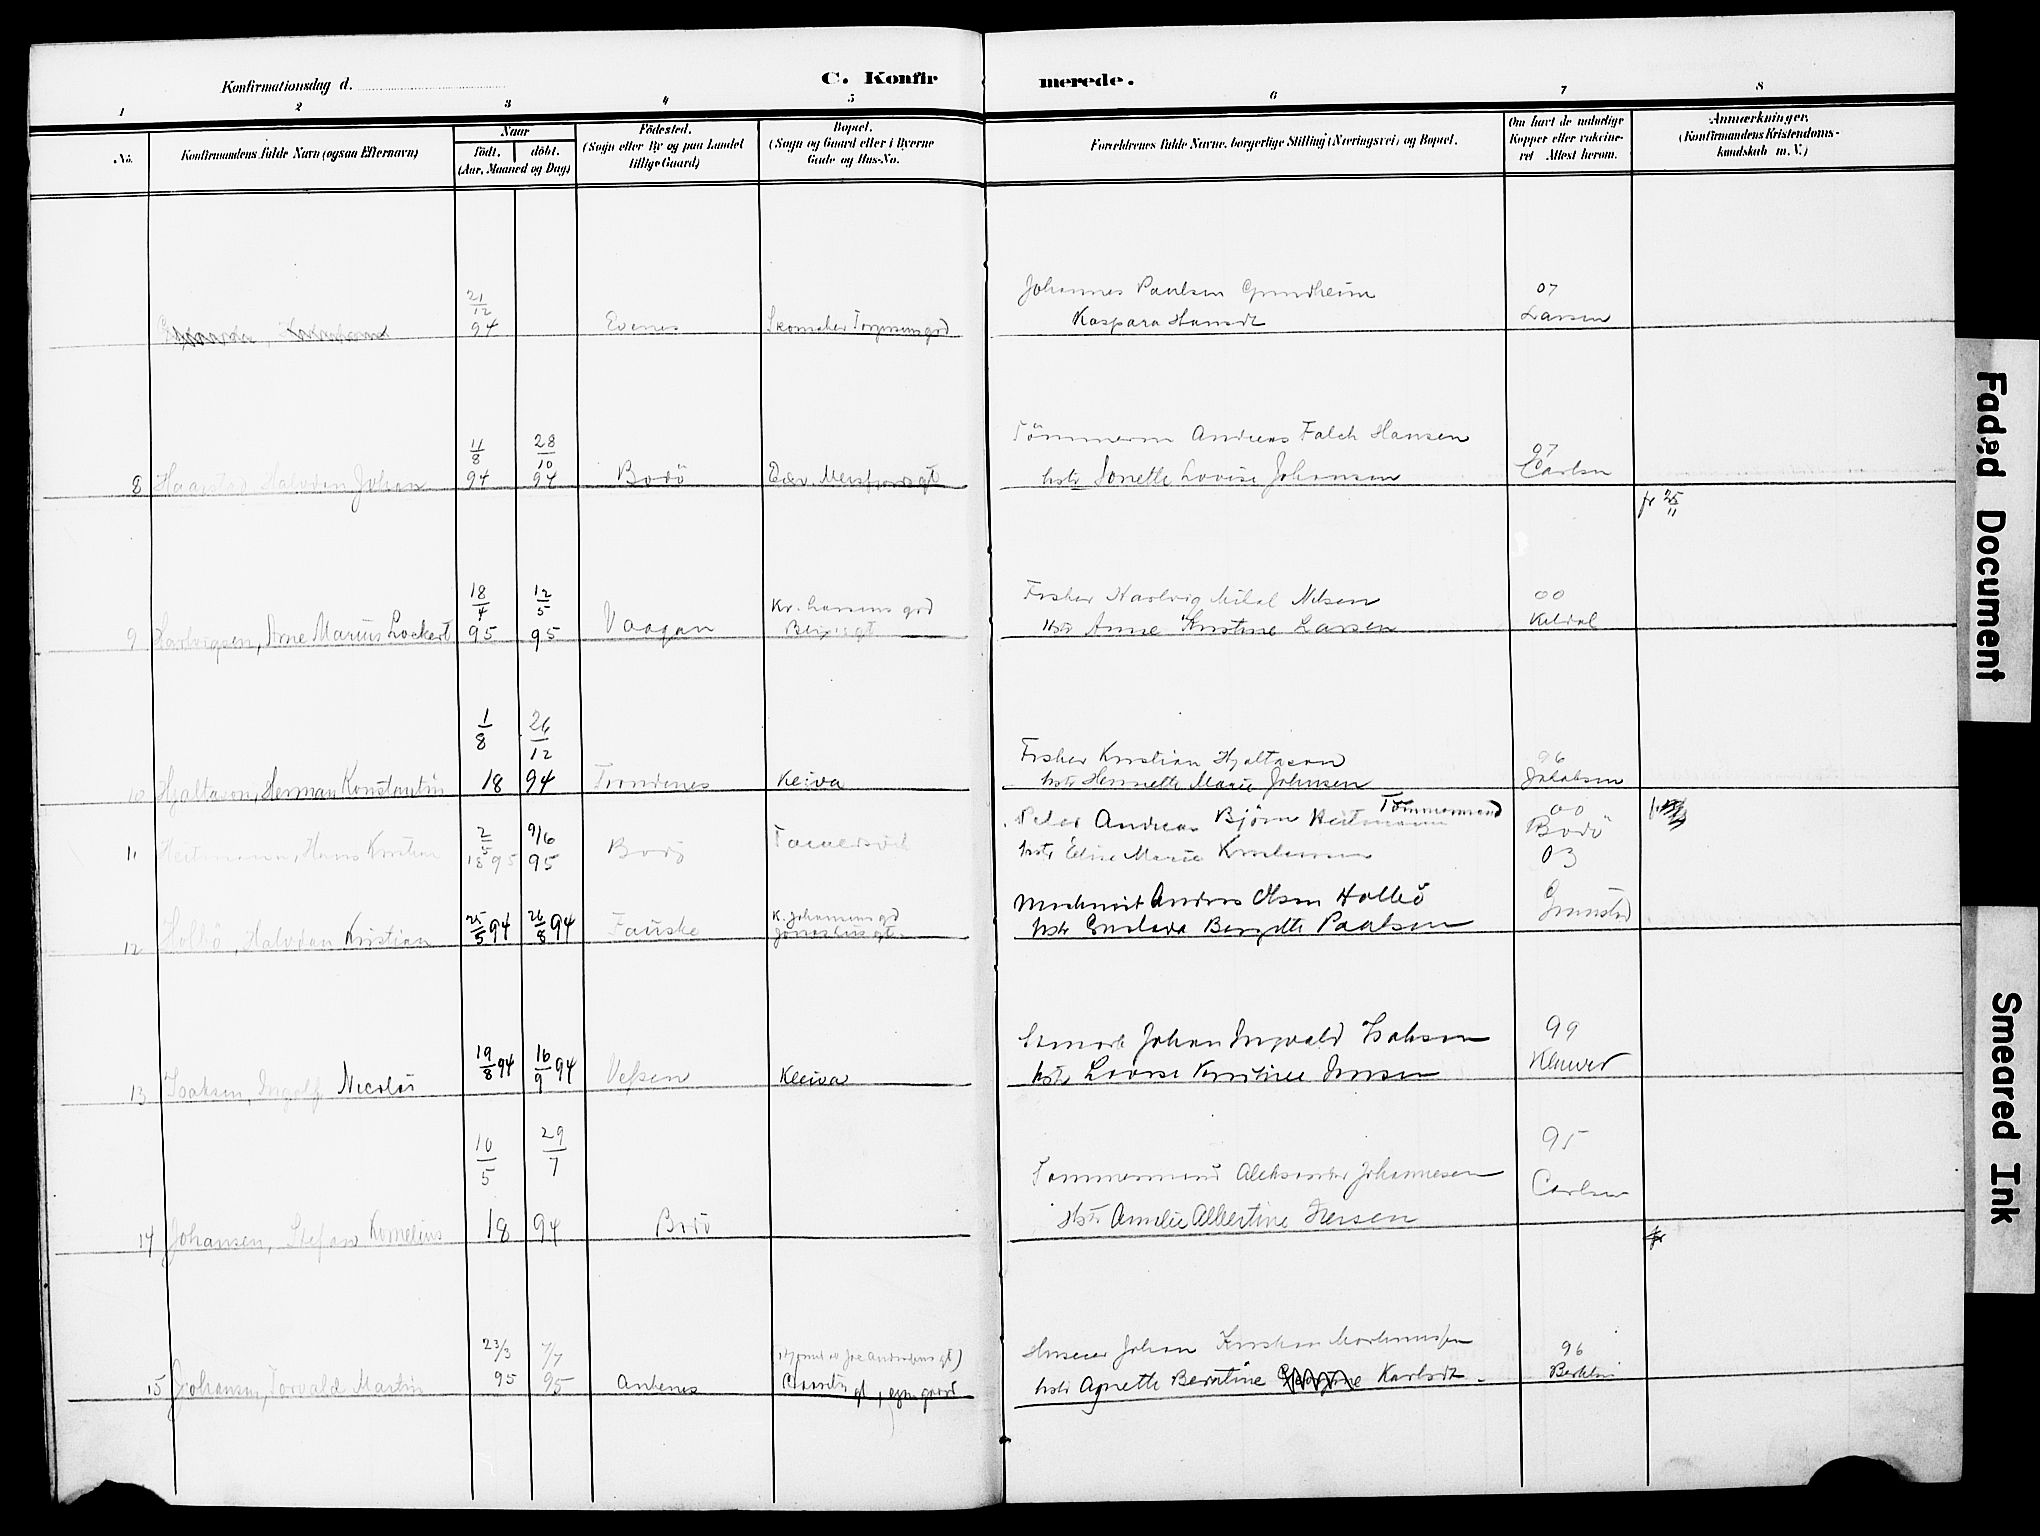 Konfirmationsdag d.
C. Konfirmerede.
1 2 3 4 5 6 7 8
No.
Konfirmandens fulde Navn (ogsaa Efternavn)
Naar
födt. döbt.
(Aar, Maaned og Dag)
Födested.
(Sogn eller By og paa Landet
tillige Gaard)
Bopæl.
(Sogn og Gaard eller i Byerne
Gade og Hus-No.
Forældrenes fulde Navne, borgerlige Stilling (Næringsvei) og Bopæl.
Om havt de naturlige
Kopper eller vakcine-
ret Attest herom.
Anmærkninger.
(Konfirmandens Kristendoms-
kundskab m. V.)
21/12 94
Evenes
Johannes Paulsen Grundheim
Kaspara Hansdt
07
Larsen
8
Haagstad Halvdan Johan
11/8 94
28/10 94
Bodö
Andreas Falch Hansen
hstr Jonette Lovise Johansen
07
Carlsen
fr 25/11
9
Hartvigsen, Arne Marius Lockert
18/4 95
12/5 95
Vaagan
Kr. Larsens grd
Fisker Hartvig Mikal Nilsen
Hstr Anne Kristine Larsen
00
Keldal
10
Hjaltason, Herman Konstantin
1/8 18
26/12 94
Trondenes
Kleiva
Fisker Kristian Hjaltason
hstr Hennette Marie Johnsen
96
Jakobsen
11
Heitmann, Hans Kristian
2/5 1895
9/6 95
Bodö
Peder Andreas Björn Heitmann Tömmermand
hstr Elise Marie Kristensen
00
Bodö
03
12
Holbö, Halvdan Kristian
25/5 94
26/8 94
Fauske
K. Johansens grd
Andreas Olsen Holbö
hstr Gustava Bergitte Paulsen
Grimstad
13
Isaksen, Ingolf Nicolai
19/8 94
16/9 94
Vefsen
Kleiva
Johan Ingvald Isaksen
hstr Lovise Kristine Jensen
99
Klæuwer
14
Johansen, Stefan Kornelius
10/5 18
29/7 94
Bodö
Tømmermand Aleksander Johannesen
Hstr Amelie Albertine Iversen
95
Carlsen
fr
15
Johansen, Torvald Martin
23/3 95
7/7 95
Ankenes
gt, egen gaard
Johan Kristian Martinussen
hstr Agnette Berntine Karlsdt.
96